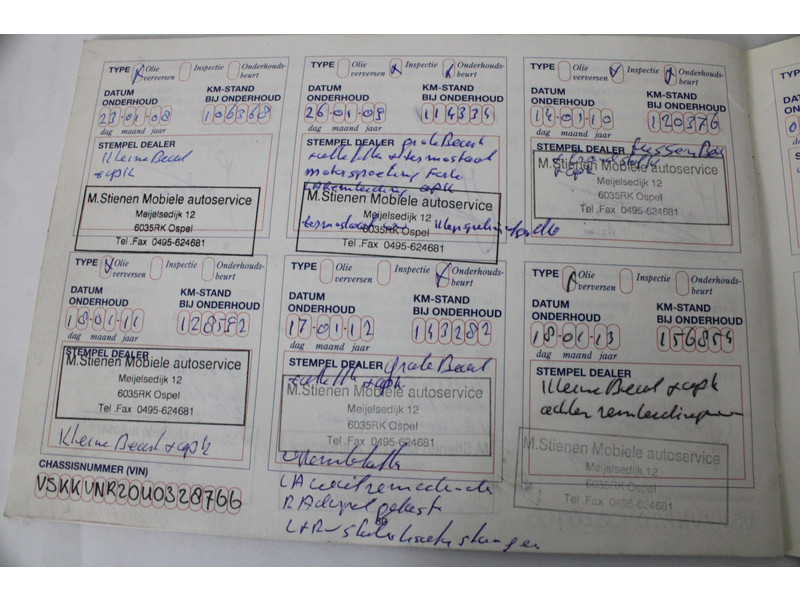 TYPE Olie verversen Inspectie Onderhouds-beurt
DATUM ONDERHOUD KM-STAND BIJ ONDERHOUD
23-01-08 106368
dag maand jaar
STEMPEL DEALER
Kleine Beurt
+ apk
M.Stienen Mobiele autoservice
Meijelsedijk 12
6035RK Ospel
Tel .Fax 0495-624681
TYPE Olie verversen Inspectie Onderhouds-beurt
DATUM ONDERHOUD KM-STAND BIJ ONDERHOUD
26-01-09 114334
dag maand jaar
STEMPEL DEALER grote Beurt
+ termostaat
motorspoeling
apk
M.Stienen Mobiele autoservice
Meijelsedijk 12
6035RK Ospel
termostaat
Tel .Fax 0495-624681
TYPE Olie verversen Inspectie Onderhouds-beurt
DATUM ONDERHOUD KM-STAND BIJ ONDERHOUD
14-01-10 120376
dag maand jaar
STEMPEL DEALER
M.Stienen Mobiele autoservice
+ apk
Meijelsedijk 12
6035RK Ospel
Tel .Fax 0495-624681
TYPE Olie verversen Inspectie Onderhouds-beurt
DATUM ONDERHOUD KM-STAND BIJ ONDERHOUD
18-01-11 128582
dag maand jaar
STEMPEL DEALER
M.Stienen Mobiele autoservice
Meijelsedijk 12
6035RK Ospel
Tel .Fax 0495-624681
Kleine Beurt + apk
TYPE Olie verversen Inspectie Onderhouds-beurt
DATUM ONDERHOUD KM-STAND BIJ ONDERHOUD
17-01-12 143282
dag maand jaar
STEMPEL DEALER grote Beurt
+ apk
M.Stienen Mobiele autoservice
Meijelsedijk 12
6035RK Ospel
Tel .Fax 0495-624681
TYPE Olie verversen Inspectie Onderhouds-beurt
DATUM ONDERHOUD KM-STAND BIJ ONDERHOUD
18-01-13 156854
dag maand jaar
STEMPEL DEALER
Kleine Beurt + apk
achter remleidingen
M.Stienen Mobiele autoservice
Meijelsedijk 12
6035RK Ospel
Tel .Fax 0495-624681
CHASSISNUMMER (VIN)
VSKKVNR20U0328766